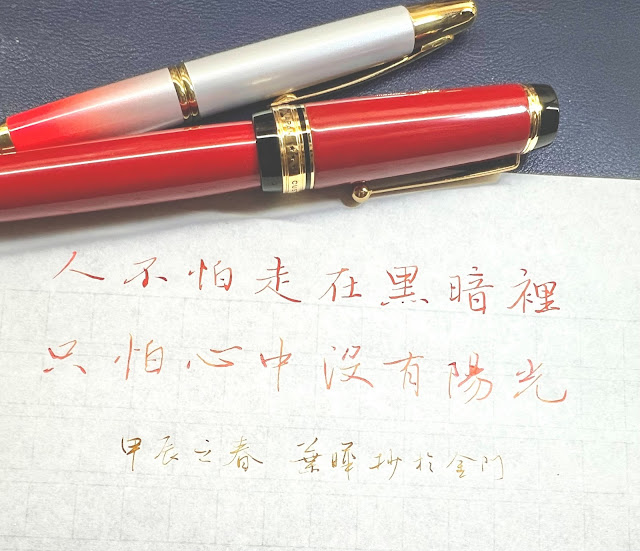 人不怕走在黑暗裡
只怕心中沒有陽光
甲辰立春 葉曄抄於金門